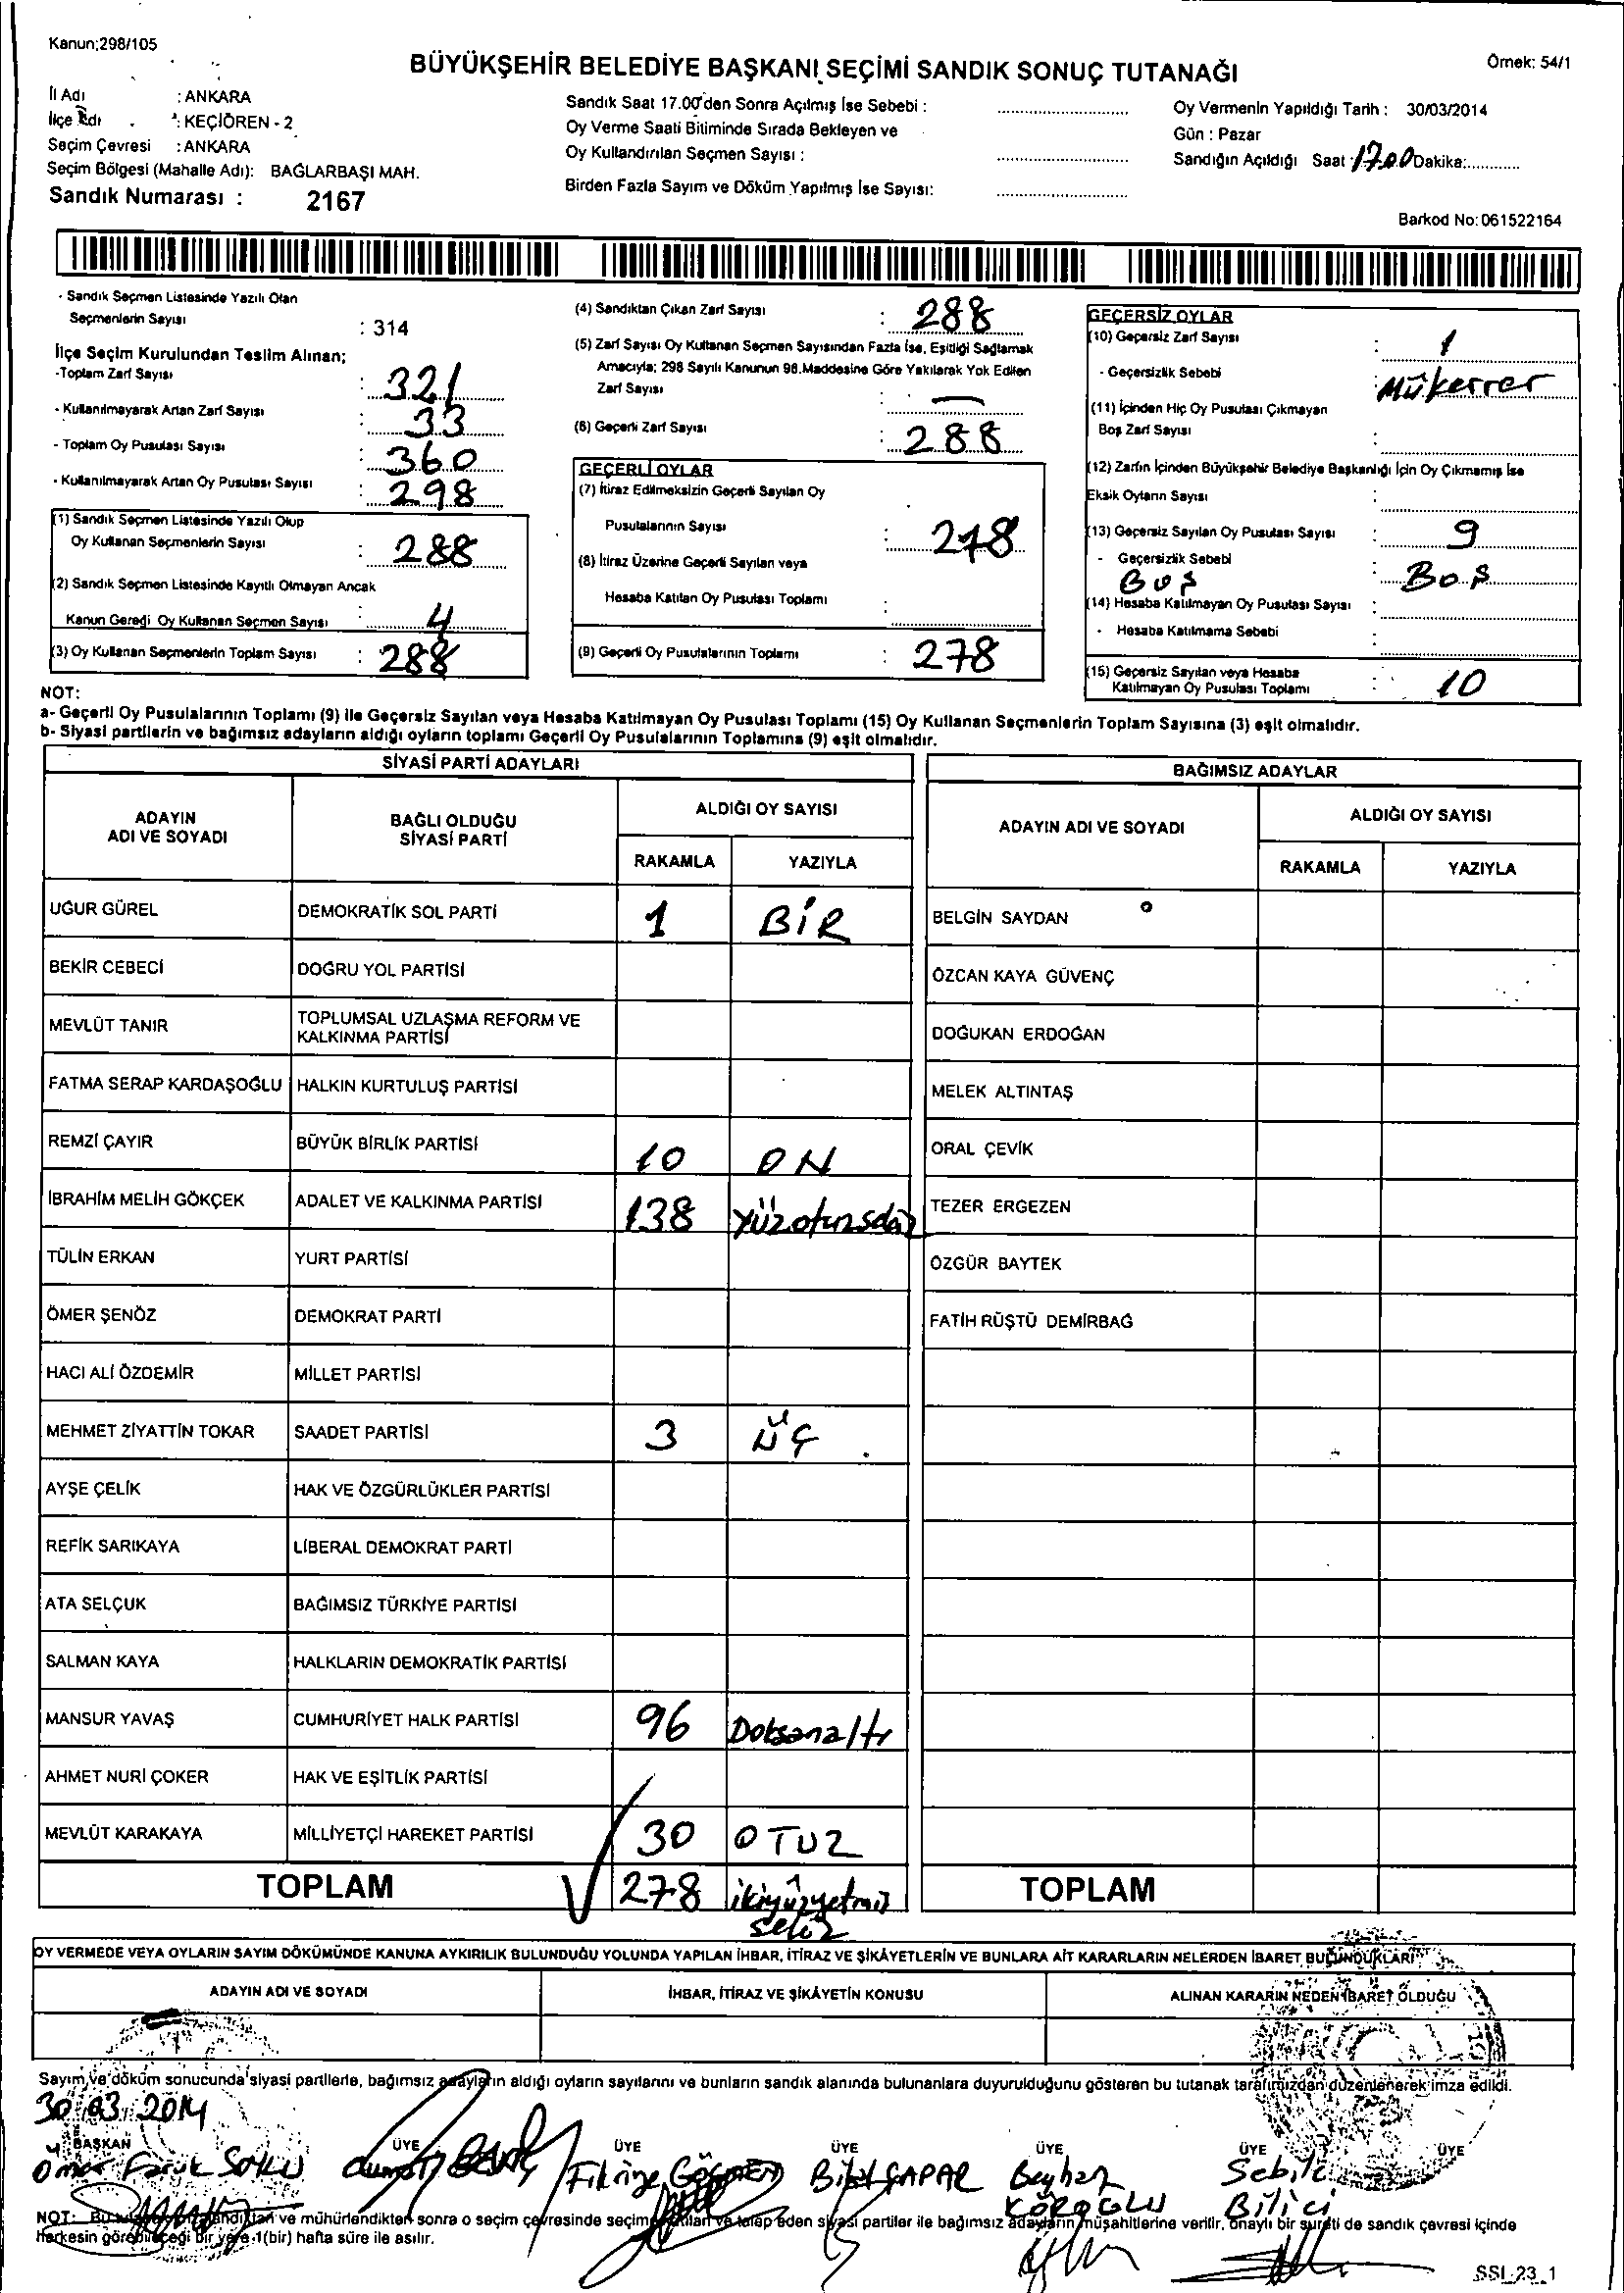 Kanun;298/105
BÜYÜKŞEHİR BELEDİYE BAŞKANI SEÇİMİ SANDIK SONUÇ TUTANAĞI
Örnek: 54/1
İl Adı : ANKARA
İlçe Adı : KEÇİÖREN - 2
Seçim Çevresi : ANKARA
Seçim Bölgesi (Mahalle Adı): BAĞLARBAŞI MAH.
Sandık Numarası : 2167
Sandık Saat 17.00'den Sonra Açılmış İse Sebebi :
Oy Verme Saati Bitiminde Sırada Bekleyen ve
Oy Kullandırılan Seçmen Sayısı :
Birden Fazla Sayım ve Döküm Yapılmış İse Sayısı:
Oy Vermenin Yapıldığı Tarih : 30/03/2014
Gün : Pazar
Sandığın Açıldığı Saat : 17.00 Dakika:
Barkod No: 061522164
- Sandık Seçmen Listesinde Yazılı Olan
Seçmenlerin Sayısı : 314
İlçe Seçim Kurulundan Teslim Alınan;
-Toplam Zarf Sayısı : 321
- Kullanılmayarak Artan Zarf Sayısı : 33
- Toplam Oy Pusulası Sayısı : 360
- Kullanılmayarak Artan Oy Pusulası Sayısı : 298
(1) Sandık Seçmen Listesinde Yazılı Olup
Oy Kullanan Seçmenlerin Sayısı : 288
(2) Sandık Seçmen Listesinde Kayıtlı Olmayan Ancak
Kanun Gereği Oy Kullanan Seçmen Sayısı : 4
(3) Oy Kullanan Seçmenlerin Toplam Sayısı : 288
(4) Sandıktan Çıkan Zarf Sayısı : 288
(5) Zarf Sayısı Oy Kullanan Seçmen Sayısından Fazla İse, Eşitliği Sağlamak
Amacıyla; 298 Sayılı Kanunun 98.Maddesine Göre Yakılarak Yok Edilen
Zarf Sayısı : —
(6) Geçerli Zarf Sayısı : 288
GEÇERLİ OYLAR
(7) İtiraz Edilmeksizin Geçerli Sayılan Oy
Pusulalarının Sayısı : 278
(8) İtiraz Üzerine Geçerli Sayılan veya
Hesaba Katılan Oy Pusulası Toplamı :
(9) Geçerli Oy Pusulalarının Toplamı : 278
GEÇERSİZ OYLAR
(10) Geçersiz Zarf Sayısı : 1
- Geçersizlik Sebebi : Mükerrer
(11) İçinden Hiç Oy Pusulası Çıkmayan
Boş Zarf Sayısı :
(12) Zarfın İçinden Büyükşehir Belediye Başkanlığı İçin Oy Çıkmamış İse
Eksik Oyların Sayısı :
(13) Geçersiz Sayılan Oy Pusulası Sayısı : 9
- Geçersizlik Sebebi : Boş
Boş
(14) Hesaba Katılmayan Oy Pusulası Sayısı :
- Hesaba Katılmama Sebebi :
(15) Geçersiz Sayılan veya Hesaba
Katılmayan Oy Pusulası Toplamı : 10
NOT:
a- Geçerli Oy Pusulalarının Toplamı (9) ile Geçersiz Sayılan veya Hesaba Katılmayan Oy Pusulası Toplamı (15) Oy Kullanan Seçmenlerin Toplam Sayısına (3) eşit olmalıdır.
b- Siyasi partilerin ve bağımsız adayların aldığı oyların toplamı Geçerli Oy Pusulalarının Toplamına (9) eşit olmalıdır.
SİYASİ PARTİ ADAYLARI
ADAYIN ADI VE SOYADI
BAĞLI OLDUĞU SİYASİ PARTİ
ALDIĞI OY SAYISI
RAKAMLA YAZIYLA
UĞUR GÜREL DEMOKRATİK SOL PARTİ 1 BİR
BEKİR CEBECİ DOĞRU YOL PARTİSİ
MEVLÜT TANIR TOPLUMSAL UZLAŞMA REFORM VE
KALKINMA PARTİSİ
FATMA SERAP KARDAŞOĞLU HALKIN KURTULUŞ PARTİSİ
REMZİ ÇAYIR BÜYÜK BİRLİK PARTİSİ 10 ON
İBRAHİM MELİH GÖKÇEK ADALET VE KALKINMA PARTİSİ 138
TÜLİN ERKAN YURT PARTİSİ
ÖMER ŞENÖZ DEMOKRAT PARTİ
HACI ALİ ÖZDEMİR MİLLET PARTİSİ
MEHMET ZİYATTİN TOKAR SAADET PARTİSİ 3 ÜÇ
AYŞE ÇELİK HAK VE ÖZGÜRLÜKLER PARTİSİ
REFİK SARIKAYA LİBERAL DEMOKRAT PARTİ
ATA SELÇUK BAĞIMSIZ TÜRKİYE PARTİSİ
SALMAN KAYA HALKLARIN DEMOKRATİK PARTİSİ
MANSUR YAVAŞ CUMHURİYET HALK PARTİSİ 96 Doksanaltı
AHMET NURİ ÇOKER HAK VE EŞİTLİK PARTİSİ
MEVLÜT KARAKAYA MİLLİYETÇİ HAREKET PARTİSİ 30 OTUZ
TOPLAM 278 ikiyüzyetmiş
sekiz
BAĞIMSIZ ADAYLAR
ADAYIN ADI VE SOYADI
ALDIĞI OY SAYISI
RAKAMLA YAZIYLA
BELGİN SAYDAN
ÖZCAN KAYA GÜVENÇ
DOĞUKAN ERDOĞAN
MELEK ALTINTAŞ
ORAL ÇEVİK
TEZER ERGEZEN
ÖZGÜR BAYTEK
FATİH RÜŞTÜ DEMİRBAĞ
TOPLAM
OY VERMEDE VEYA OYLARIN SAYIM DÖKÜMÜNDE KANUNA AYKIRILIK BULUNDUĞU YOLUNDA YAPILAN İHBAR, İTİRAZ VE ŞİKÂYETLERİN VE BUNLARA AİT KARARLARIN NELERDEN İBARET BULUNDUKLARI
ADAYIN ADI VE SOYADI İHBAR, İTİRAZ VE ŞİKÂYETİN KONUSU ALINAN KARARIN NEDEN İBARET OLDUĞU
Sayım ve döküm sonucunda siyasi partilerle, bağımsız adayların aldığı oyların sayılarını ve bunların sandık alanında bulunanlara duyurulduğunu gösteren bu tutanak tarafımızdan düzenlenerek imza edildi.
30.03.2014
BAŞKAN ÜYE ÜYE ÜYE ÜYE ÜYE ÜYE
Ömer Faruk Fikriye Beyhan Sebile
KÖROĞLU Bilici
NOT: Bu ve mühürlendikten sonra o seçim çevresinde seçime katılan ve talep eden siyasi partiler ile bağımsız adayların müşahitlerine verilir, onaylı bir sureti de sandık çevresi içinde
herkesin görebileceği bir yere 1(bir) hafta süre ile asılır.
SSI-23_1